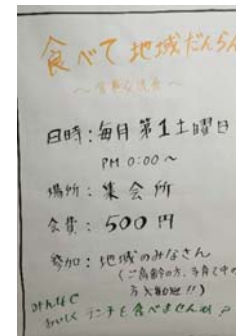 食べて地域だんらん
～食事交流会～
日時：毎月第1土曜日
PM 0:00～
場所：集会所
会費：500円
参加：地域のみなさん
(ご高齢の方、子育て中の
方大歓迎!!)
みんなで
おいしくランチを食べませんか？